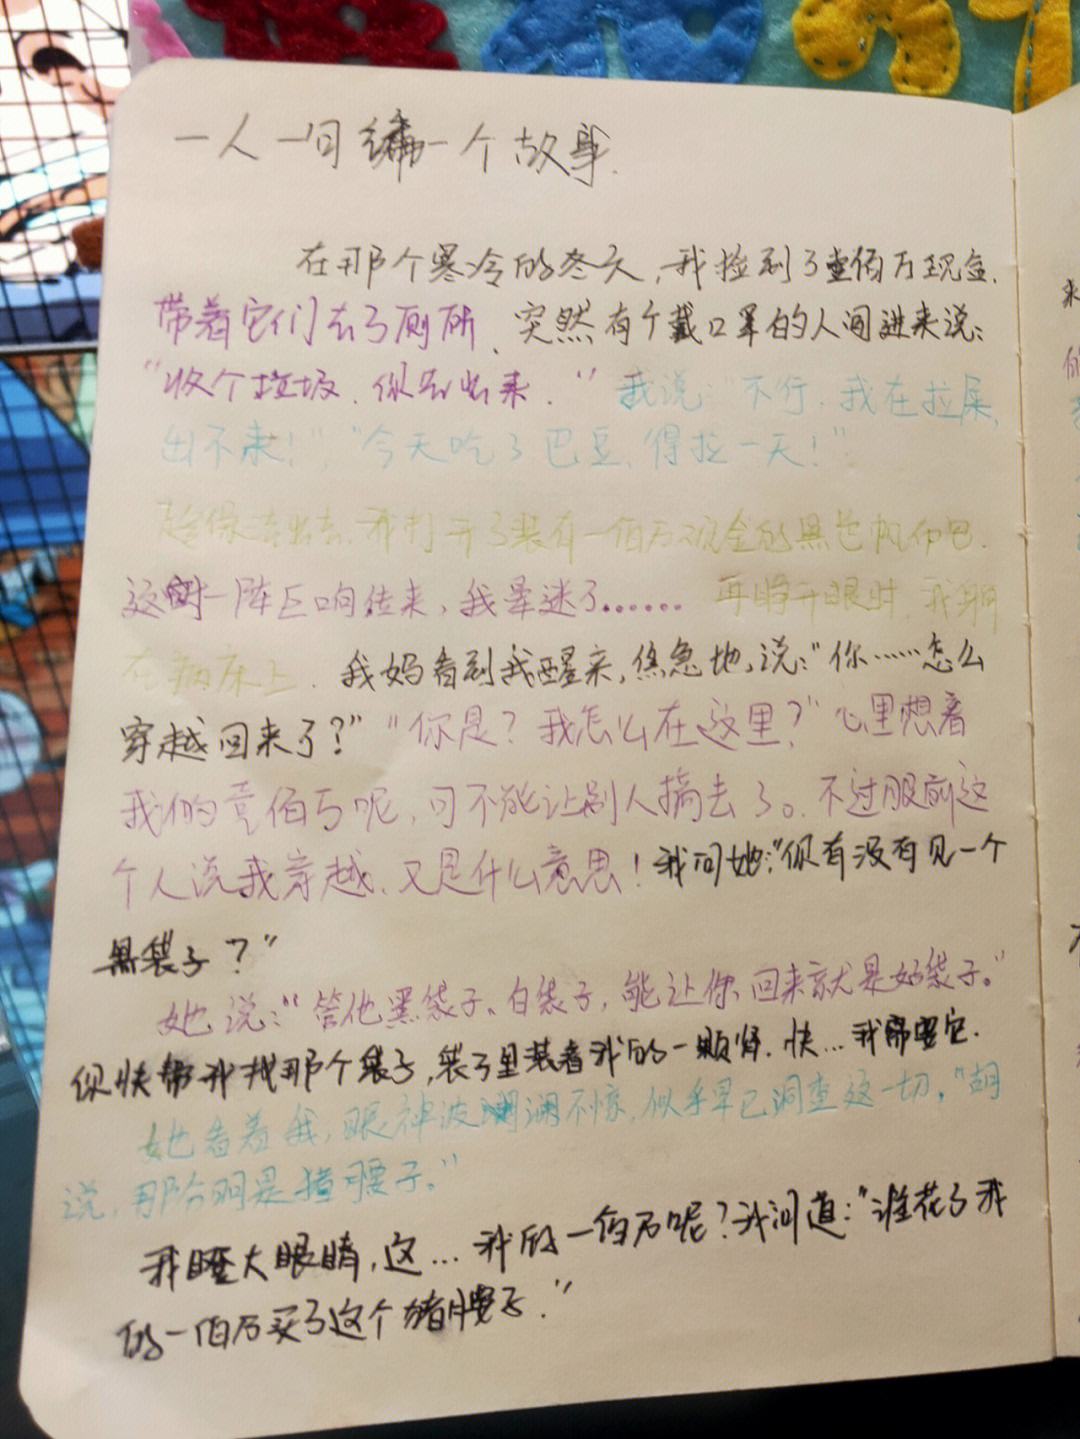 一人一句编一个故事.
在那个寒冷的冬天,我捡到了壹佰万现金.
带着它们去了厕所、突然有个戴口罩的人闯进来说:
"收个垃圾.你先出来."我说:"不行.我在拉屎,
出不来!""今天吃了巴豆,得拉一天!"
趁保洁出去,我打开了装有一佰万现金的黑色帆布包.
这时一阵巨响传来,我晕迷了......再睁开眼时,我躺
在病床上.我妈看到我醒来,焦急地,说:"你……怎么
穿越回来了?""你是?我怎么在这里?"心里想着
我的壹佰万呢,可不能让别人搞去了。不过眼前这
个人说我穿越.又是什么意思!我问她:"你有没有见一个
黑袋子?"
她说:"管他黑袋子、白袋子,能让你回来就是好袋子。"
你快帮我找那个袋子,袋子里装着我的一颗肾.快...我需要它.
她看着我,眼神波澜不惊,似乎早已洞查这一切,"胡
说,那分明是猪腰子。"
我瞪大眼睛,这...我的一佰万呢?我问道:"谁花了我
的一佰万买了这个猪腰子."
来